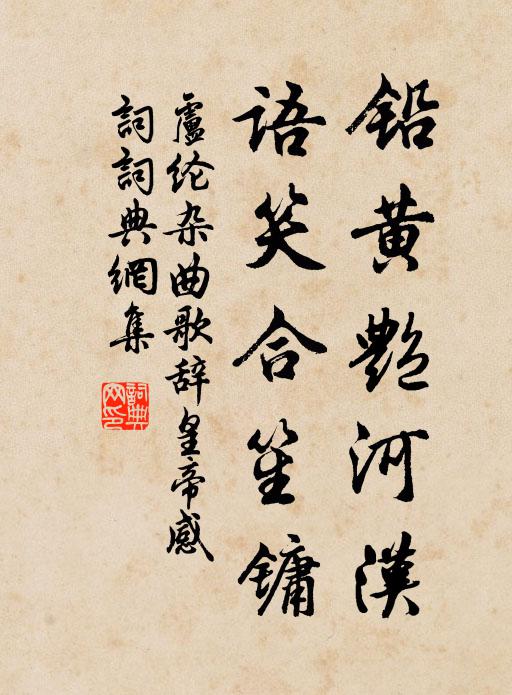 铅黄艳河漢
语笑合笙鏞
盧纶杂曲歌辞皇帝感
詞詞典網集
詞典網印